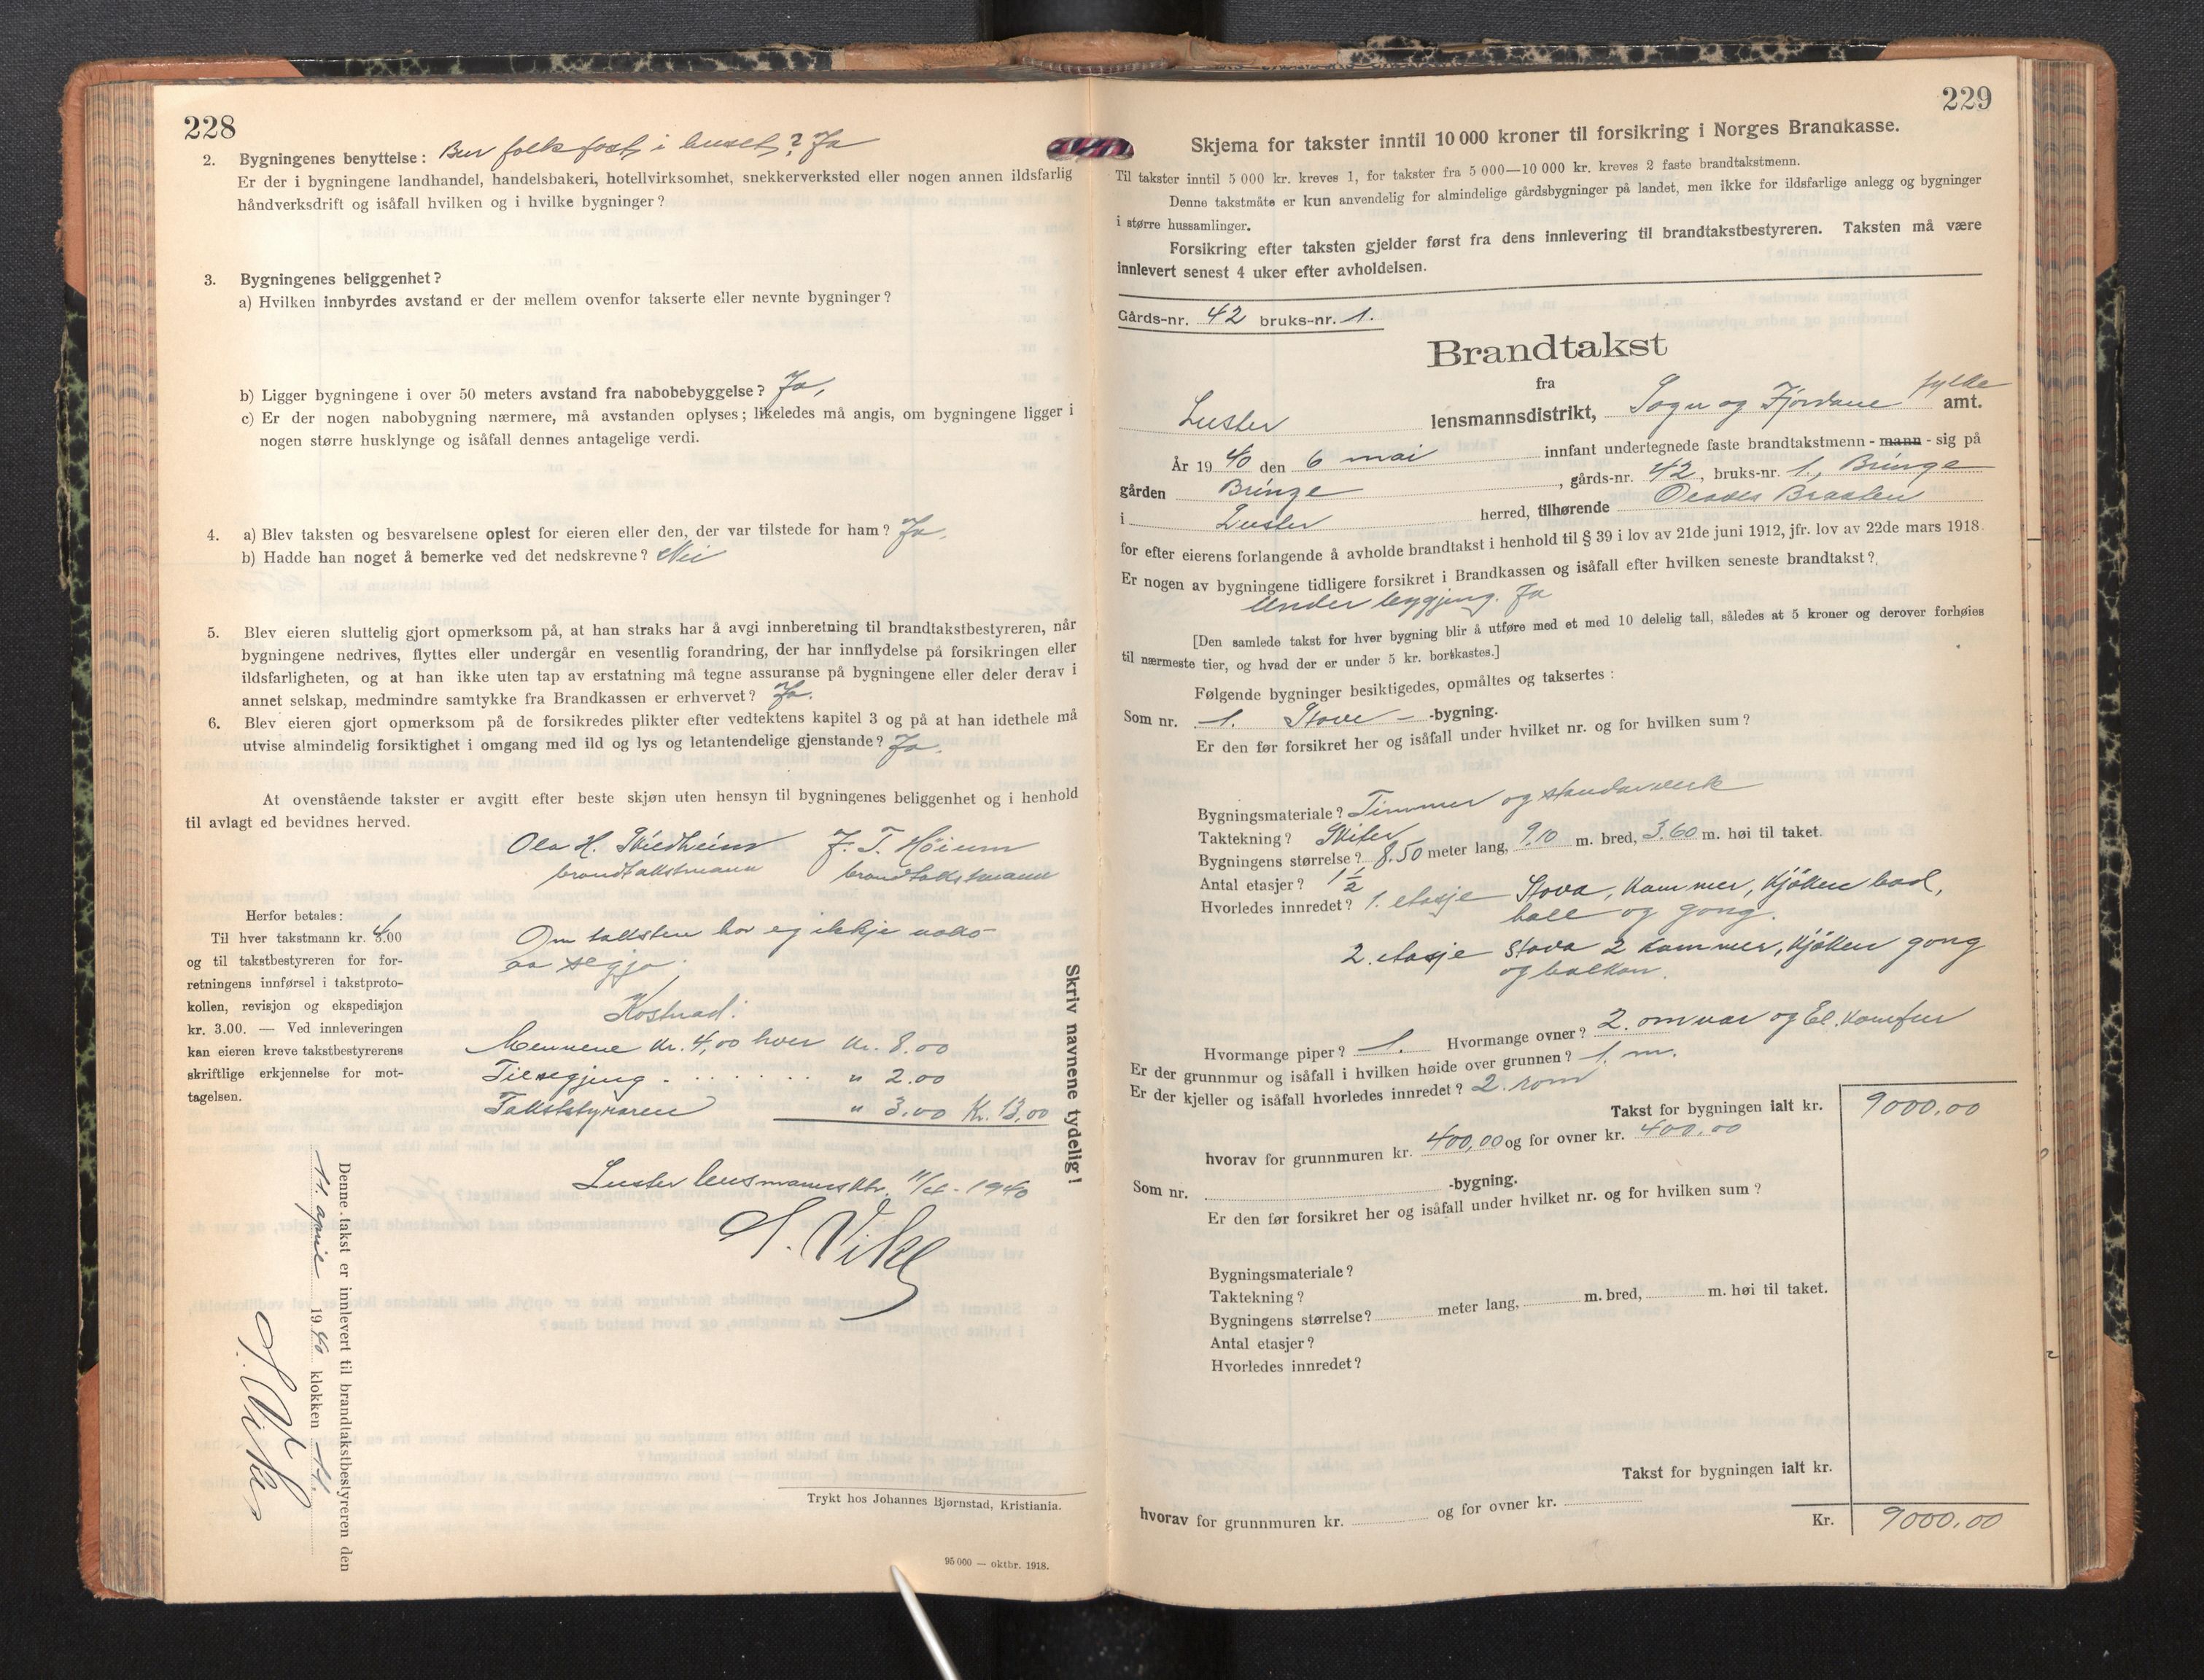 228
2. Bygningenes benyttelse: Bur folk fast i huset? Ja
Er der i bygningene landhandel, handelsbakeri, hotellvirksomhet, snekkerverksted eller nogen annen ildsfarlig
håndverksdrift og isåfall hvilken og i hvilke bygninger?
3. Bygningenes beliggenhet?
a) Hvilken innbyrdes avstand er der mellem ovenfor takserte eller nevnte bygninger?
b) Ligger bygningene i over 50 meters avstand fra nabobebyggelse? Ja,
c) Er der nogen nabobygning nærmere, må avstanden oplyses; likeledes må angis, om bygningene ligger i
nogen større husklynge og isåfall dennes antagelige verdi.
4. a) Blev taksten og besvarelsene oplest for eieren eller den, der var tilstede for ham? Ja.
b) Hadde han noget å bemerke ved det nedskrevne? Nei
5. Blev eieren sluttelig gjort opmerksom på, at han straks har å avgi innberetning til brandtakstbestyreren, når
bygningene nedrives, flyttes eller undergår en vesentlig forandring, der har innflydelse på forsikringen eller
ildsfarligheten, og at han ikke uten tap av erstatning må tegne assuranse på bygningene eller deler derav i
annet selskap, medmindre samtykke fra Brandkassen er erhvervet? Ja.
6. Blev eieren gjort opmerksom på de forsikredes plikter efter vedtektens kapitel 3 og på at han idethele må
utvise almindelig forsiktighet i omgang med ild og lys og letantendelige gjenstande? Ja.
At ovenstående takster er avgitt efter beste skjøn uten hensyn til bygningenes beliggenhet og i henhold
til avlagt ed bevidnes herved.
Ola H. J. T. Høium
brandtakstmann brandtakstmann
Herfor betales:
Til hver takstmann kr. 3.00 4
og til takstbestyreren for for-
retningens innførsel i takstproto-
kollen, revisjon og ekspedisjon
kr. 3.00. — Ved innleveringen
kan eieren kreve takstbestyrerens
skriftlige erkjennelse for mot-
tagelsen.
Om taksten har eg ikkje noko
aa segja.
Kostnad:
Mennene kr. 4,00 hver kr. 8.00
Tilsegjing . . . . . . . " 2.00
Takststyraren " 3.00 Kr. 13,00
Luster lensmannsktr. 11/4 - 1940
S. Vike
Skriv navnene tydelig!
Denne takst er innlevert til brandtakstbestyreren den
11. april 1940 klokken 11.
S. Vike
Trykt hos Johannes Bjørnstad, Kristiania.
95 000 — oktbr. 1918.
229
Skjema for takster inntil 10 000 kroner til forsikring i Norges Brandkasse.
Til takster inntil 5 000 kr. kreves 1, for takster fra 5 000—10 000 kr. kreves 2 faste brandtakstmenn.
Denne takstmåte er kun anvendelig for almindelige gårdsbygninger på landet, men ikke for ildsfarlige anlegg og bygninger
i større hussamlinger.
Forsikring efter taksten gjelder først fra dens innlevering til brandtakstbestyreren. Taksten må være
innlevert senest 4 uker efter avholdelsen.
Gårds-nr. 42 bruks-nr. 1.
Brandtakst
fra
Luster lensmannsdistrikt, Sogn og Fjordane fylke amt.
År 1940 den 6 mai innfant undertegnede faste brandtakstmenn - mann - sig på
gården Bringe, gårds-nr. 42, bruks-nr. 1, Bringe
i Luster herred, tilhørende Braaten
for efter eierens forlangende å avholde brandtakst i henhold til § 39 i lov av 21de juni 1912, jfr. lov av 22de mars 1918.
Er nogen av bygningene tidligere forsikret i Brandkassen og isåfall efter hvilken seneste brandtakst?
Under bygging. Ja
[Den samlede takst for hver bygning blir å utføre med et med 10 delelig tall, således at 5 kroner og derover forhøies
til nærmeste tier, og hvad der er under 5 kr. bortkastes.]
Følgende bygninger besiktigedes, opmåltes og taksertes:
Som nr. 1. Stove - -bygning.
Er den før forsikret her og isåfall under hvilket nr. og for hvilken sum?
Bygningsmateriale? Timmer og standarverk
Taktekning? Skifer
Bygningens størrelse? 8.50 meter lang, 9.10 m. bred, 3.60 m. høi til taket.
Antal etasjer? 1 1/2
Hvorledes innredet? 1. etasje Stova, kammer, kjøken bad,
hall og gong.
2. etasje Stova 2 kammer, kjøken gong
og balkon.
Hvormange piper? 1. Hvormange ovner? 2. omnar og El. komfur
Er der grunnmur og isåfall i hvilken høide over grunnen? 1. m.
Er der kjeller og isåfall hvorledes innredet? 2. rom
Takst for bygningen ialt kr. 9000.00
hvorav for grunnmuren kr. 400,00 og for ovner kr. 400.00
Som nr. -bygning.
Er den før forsikret her og isåfall under hvilket nr. og for hvilken sum?
Bygningsmateriale?
Taktekning?
Bygningens størrelse? meter lang, m. bred, m. høi til taket.
Antal etasjer?
Hvorledes innredet?
Takst for bygningen ialt kr.
hvorav for grunnmuren kr. og for ovner kr.
Kr. 9000.00